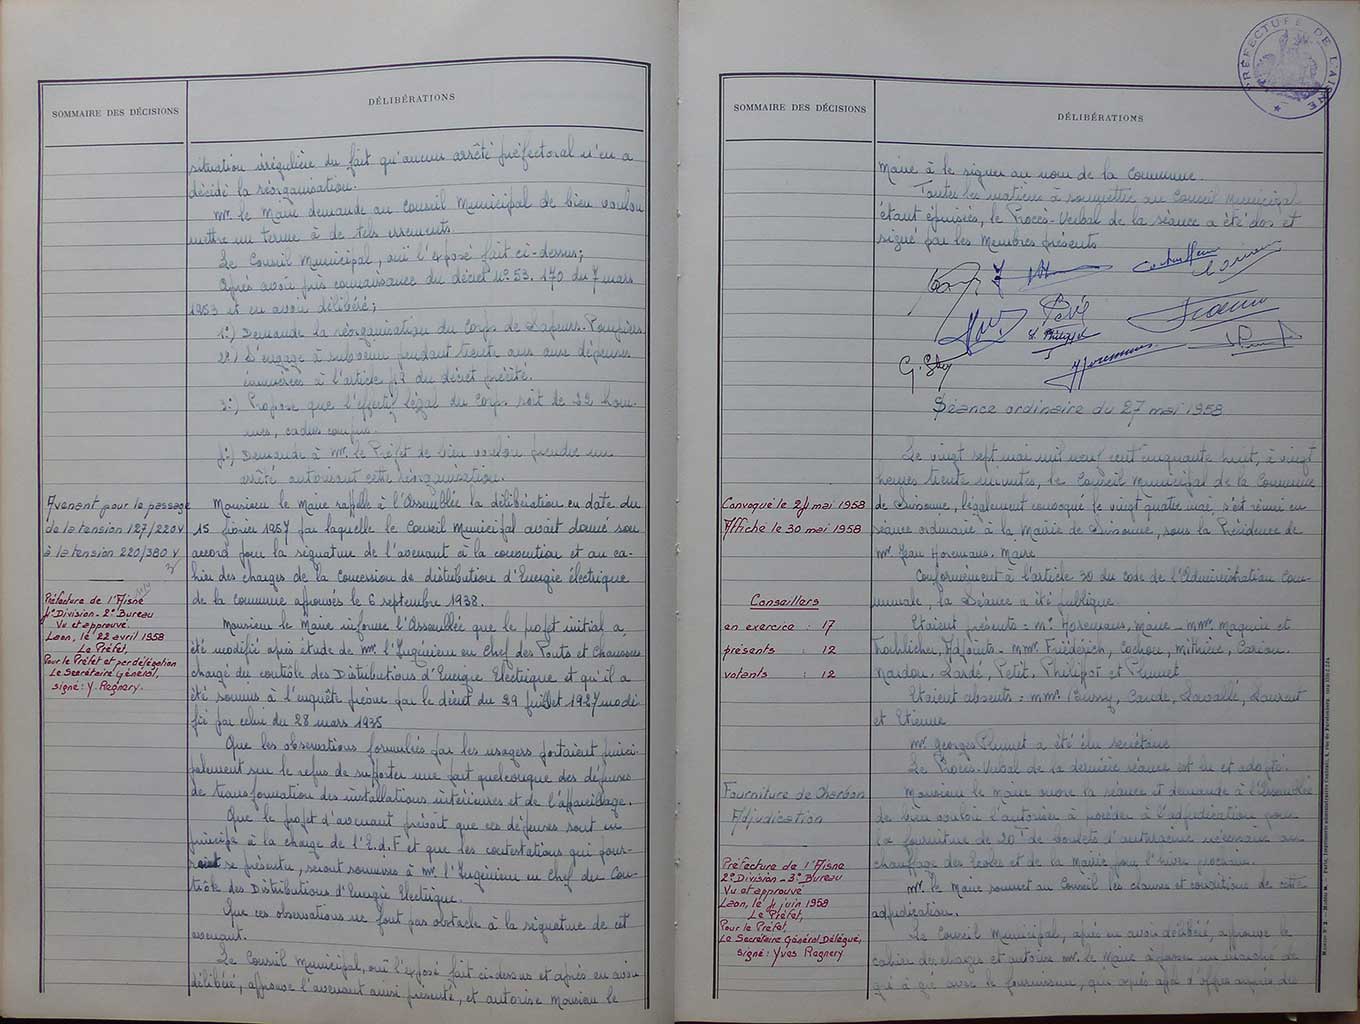 SOMMAIRE DES DÉCISIONS
DÉLIBÉRATIONS
situation irrégulière du fait qu'aucun arrêté préfectoral n'en a
décidé la réorganisation.
Mr. le Maire demande au Conseil Municipal de bien vouloir
mettre un terme à de tels errements.
Le Conseil Municipal, ouï l'exposé fait ci-dessus;
Après avoir pris connaissance du décret n° 53.170 du 7 mars
1953 et en avoir délibéré;
1°) Demande la réorganisation du Corps de Sapeurs-Pompiers
2°) S'engage à subvenir pendant trente ans aux dépenses
énumérées à l'article du décret précité.
3°) Propose que l'effectif légal du Corps soit de 22 hom-
mes, cadres compris.
4°) Demande à Mr. le Préfet de bien vouloir prendre un
arrêté autorisant cette réorganisation.
Avenant pour le passage
de la tension 127/220 V
à la tension 220/380 V
Préfecture de l'Aisne
Division - 2e Bureau
Vu et approuvé.
Laon, le 22 avril 1958
Le Préfet,
Pour le Préfet et par délégation
Le Secrétaire Général,
signé: Y. Ragnery.
Monsieur le Maire rappelle à l'Assemblée la délibération en date du
15 février 1957 par laquelle le Conseil Municipal avait donné son
accord pour la signature de l'avenant à la convention et au ca-
hier des charges de la Concession de distribution d'Energie électrique
de la Commune approuvés le 6 septembre 1938.
Monsieur le Maire informe l'Assemblée que le projet initial a
été modifié après étude de Mr. l'Ingénieur en Chef des Ponts et Chaussées
chargé du contrôle des Distributions d'Energie Electrique et qu'il a
été soumis à l'enquête prévue par le décret du 29 juillet 1927 modi
fié par celui du 28 mars 1935
Que les observations formulées par les usagers portaient princi-
palement sur le refus de supporter une part quelconque des dépenses
de transformation des installations intérieures et de l'appareillage.
Que le projet d'avenant prévoit que ces dépenses sont en
principe à la charge de l'E.d.F et que les contestations qui pour-
raient se présenter, seront soumises à Mr. l'Ingénieur en Chef du Con-
trôle des Distributions d'Energie Electrique.
Que ces observations ne font pas obstacle à la signature de cet
avenant.
Le Conseil Municipal, ouï l'exposé fait ci-dessus et après en avoir
délibéré, approuve l'avenant ainsi présenté, et autorise Monsieur le
PRÉFECTURE DE L'AISNE
SOMMAIRE DES DÉCISIONS
DÉLIBÉRATIONS
Maire à le signer au nom de la Commune.
Toutes les matières à soumettre au Conseil Municipal
étant épuisées, le Procès-Verbal de la séance a été clos et
signé par les Membres présents
Séance ordinaire du 27 mai 1958
Convoqué le 24 mai 1958
Affiché le 30 mai 1958
Conseillers
en exercice : 17
présents 12
votants : 12
Le vingt sept mai mil neuf cent cinquante huit, à vingt
heures trente minutes, le Conseil Municipal de la Commune
de Sissonne, légalement convoqué le vingt quatre mai, s'est réuni en
séance ordinaire à la Mairie de Sissonne, sous la Présidence de
Mr. Jean Horemans, Maire
Conformément à l'article 30 du code de l'Administration Com-
munale, la Séance a été publique.
Etaient présents: Mr. Horemans, Maire - MM. Maquin et
Adjoints - MM. Friédérich, Cochon, Carion,
Nardon, Lardé, Petit, Philipot et Plumet
Etaient absents: MM. Bussy, Caude, Lavallé, Laurent
et Etienne
Mr. Georges Plumet a été élu secrétaire
Le Procès-Verbal de la dernière séance est lu et adopté.
Fourniture de Charbon
Adjudication
Préfecture de l'Aisne
2e Division - 3e Bureau
Vu et approuvé
Laon, le 4 juin 1958
Le Préfet,
Pour le Préfet,
Le Secrétaire Général Délégué,
signé: Yves Ragnery
Monsieur le Maire ouvre la séance et demande à l'Assemblée
de bien vouloir l'autoriser à procéder à l'adjudication pour
la fourniture de 20T de boulets d'anthracite nécessaire au
chauffage des Ecoles et de la Mairie pour l'hiver prochain.
Mr. le Maire soumet au Conseil les clauses et conditions de cette
adjudication.
Le Conseil Municipal, après en avoir délibéré, approuve le
cahier des charges et autorise Mr. le Maire à passer un marché de
gré à gré avec le fournisseur, qui après appel d'offres auprès des